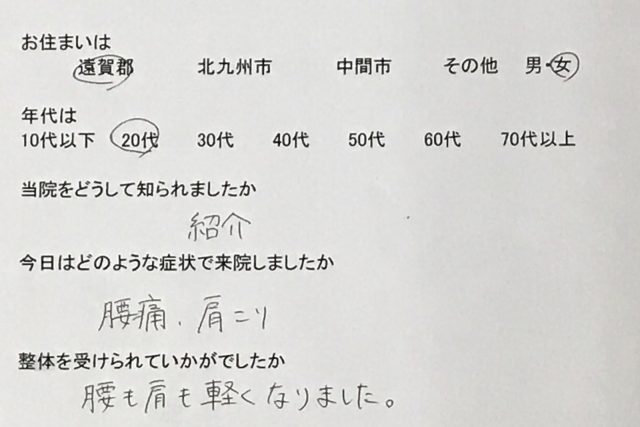 お住まいは
遠賀郡 北九州市 中間市 その他 男・女
年代は
10代以下 20代 30代 40代 50代 60代 70代以上
当院をどうして知られましたか
紹介
今日はどのような症状で来院しましたか
腰痛、肩こり
整体を受けられていかがでしたか
腰も肩も軽くなりました。